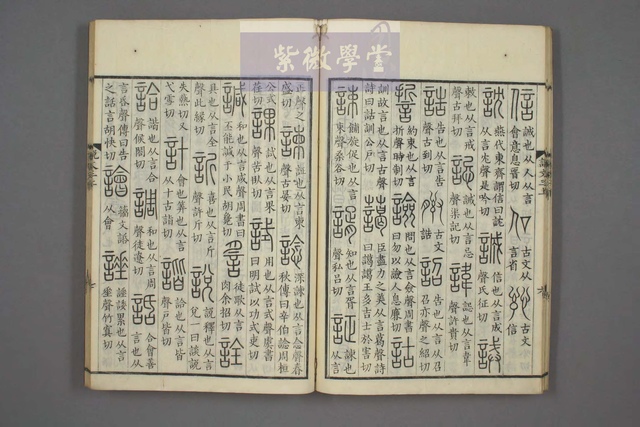 紫微學堂
信 誠也从人从言會意息晉切 古文从言省 古文信
訦 燕代東齊謂信曰訦从言冘聲是吟切
誠 信也从言成聲氏征切
誡 敕也从言戒聲古拜切
誋 誡也从言忌聲渠記切
諱 誋也从言韋聲許貴切
誥 告也从言告聲古到切 古文誥
詔 告也从言从召召亦聲之紹切
誓 約束也从言折聲時制切
譣 問也从言僉聲周書曰勿以譣人息廉切
詁 訓故言也从言古聲詩曰詁訓公戶切
藹 臣盡力之美从言葛聲詩曰藹藹王多吉士於害切
諫 餔旋促也从言束聲桑谷切
諝 知也从言胥聲私呂切
証 諫也从言
正聲之盛切
諫 証也从言柬聲古晏切
諗 深諫也从言念聲春秋傳曰辛伯諗周桓公式荏切
課 試也从言果聲苦臥切
試 用也从言式聲虞書曰明試以功式吏切
諴 和也从言咸聲周書曰不能諴于小民胡毚切
䚻 徒歌从言肉余招切
詮 具也从言全聲此緣切
訢 喜也从言斤聲許斤切
說 說釋也从言兌一曰談說失爇切又弋雪切
計 會也筭也从言从十古詣切
諧 詥也从言皆聲戶皆切
詥 諧也从言合聲候閤切
調 和也从言周聲徒遼切
話 合會善言也从言𠯑聲傳曰告之話言胡快切 籒文話从會
諈 諈諉累也从言垂聲竹寘切